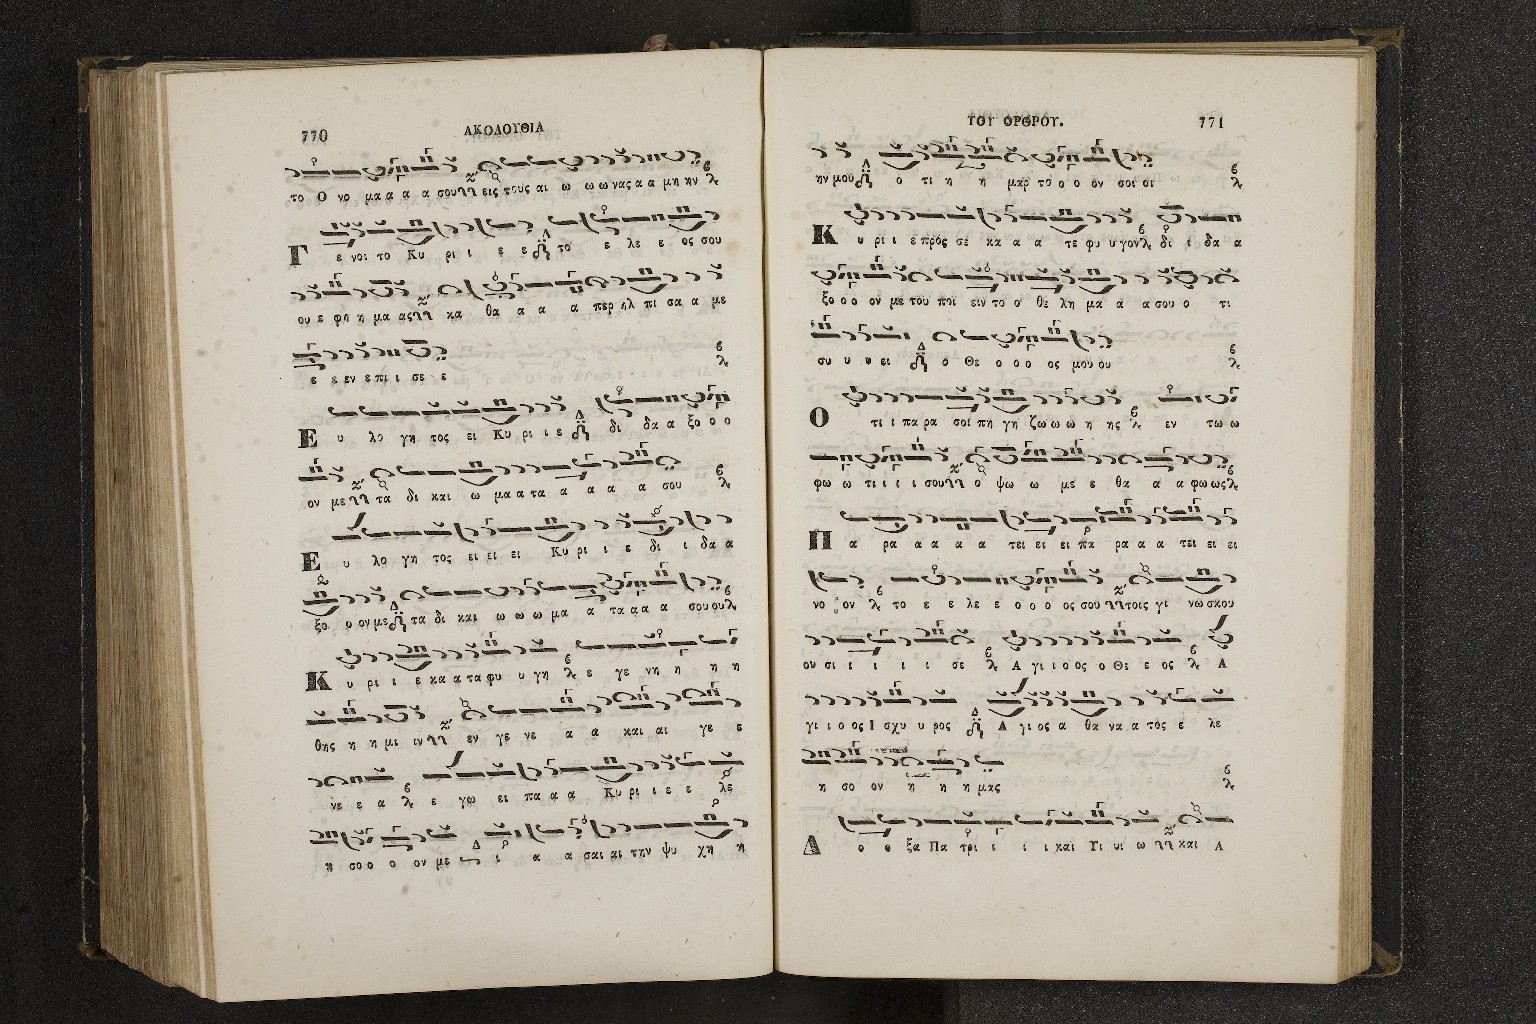 770
ΑΚΟΛΟΥΘΙΑ
το Ο νο μα α α α σου εις τους αι ω ω ω νας α α μη ην
Γ ε νοι το Κυ ρι ι ε ε το ε λε ε ος σου
ου ε φη η μα ας κα θα α α α περ ηλ πι σα α με
ε ε εν ε πι ι σε ε
Ε υ λο γη τος ει Κυ ρι ι ε δι δα α ξο ο ο
ον με τα δι και ω μα α τα α α α α σου
Ε υ λο γη τος ει ει ει Κυ ρι ι ε δι ι δα α
ξο ο ον με τα δι και ω ω ω μα α τα α α α σου ου
Κ υ ρι ι ε κα α τα φυ υ γη ε γε νη η η η
θης η η μι ιν εν γε νε α α και αι γε ε
νε ε α ε γω ει πα α α Κυ ρι ι ε ε λε
η σο ο ο ον με ι α α σαι αι την ψυ χη η
ΤΟΥ ΟΡΘΡΟΥ.
771
ην μου ο τι η η μαρ το ο ο ον σοι οι
Κ υ ρι ι ε προς σε κα α α τε φυ υ γον δι ι δα α
ξο ο ο ον με του ποι ειν το ο θε λη μα α α α σου ο τι
συ υ υ υ ει ο Θε ο ο ο ος μου ου
Ο τι ι πα ρα σοι πη γη ζω ω ω η ης εν τω ω
φω ω τι ι ι ι σου ο ψω ω με ε θα α α φω ως
Π α ρα α α α α τει ει ει πα ρα α α τει ει ει
νο ον το ε ε λε ε ο ο ο ος σου τοις γι νω σκου
ου σι ι ι ι ι σε Α γι ι ο ος ο Θε ε ος Α
γι ι ο ος Ι σχυ υ ρος Α γι ος α θα να α τος ε λε
η σο ον η η η μας
Δ ο ο ξα Πα τρι ι ι ι και Υι υι ω και Α